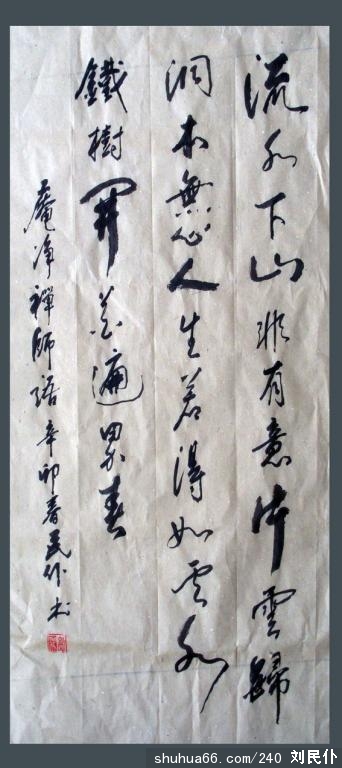 流水下山非有意片雲歸
洞本無心人生若得如云水
鐵樹開花遍界春
菴净禪師語辛卯春民仆书
shuhua66.com/240 刘民仆